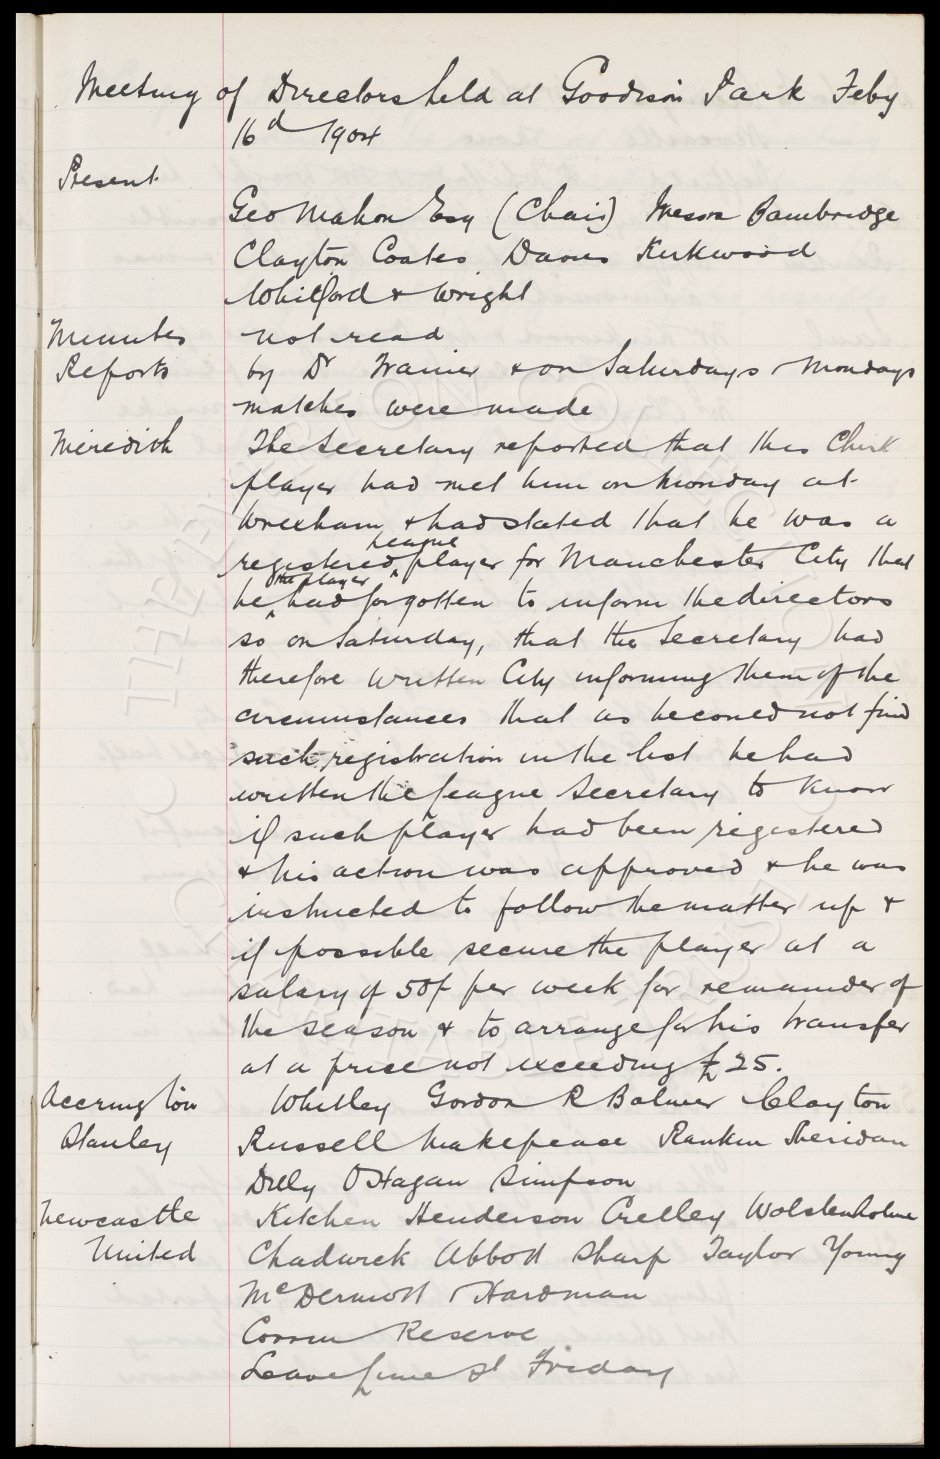 Meeting of Directors held at Goodison Park Feby
16th 1904
Present
Geo Mahon Esq (Chair) Messrs Bambridge
Clayton Coates Davies Kirkwood
Whitford & Wright
Minutes not read
Reports by Dr Trainer & on Saturdays & Mondays
matches were made
Meredith The Secretary reported that this Chirk
player had met him on Monday at
Wrexham & had stated that he was a
registered league player for Manchester City that
he the player had forgotten to inform the directors
so on Saturday, that the Secretary had
therefore written City informing them of the
circumstances that as he could not find
such registration in the list he had
written the League Secretary to know
if such player had been registered
& his action was approved & he was
instructed to follow the matter up &
if possible secure the player at a
salary of 50/- per week for remainder of
the season & to arrange for his transfer
at a price not exceeding £25.
Accrington Whitley Gordon R Balmer Clayton
Stanley Russell Makepeace Rankin Sheridan
Dilly O'Hagan Simpson
Newcastle Kitchen Henderson Crelley Wolstenholme
United Chadwick Abbott Sharp Taylor Young
McDermott & Hardman
Corrin Reserve
Leave Lime St Friday